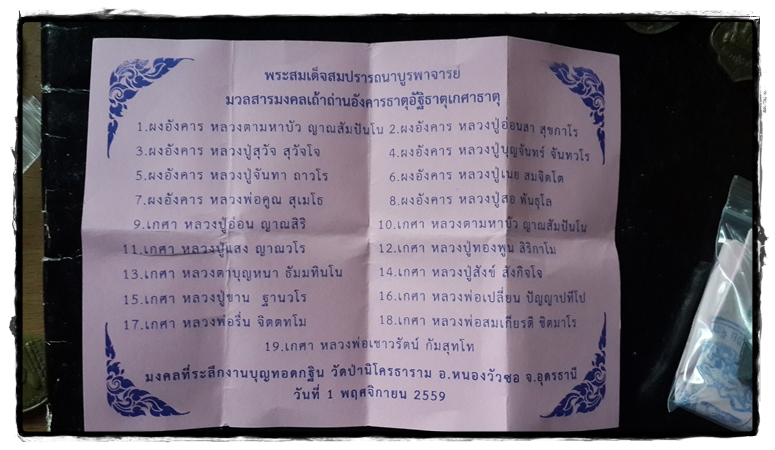 พระสมเด็จสมปรารถนาบูรพาจารย์
มวลสารมงคลเถ้าถ่านอังคารธาตุอัฐิธาตุเกศาธาตุ
1.ผงอังคาร หลวงตามหาบัว ญาณสัมปันโน 2.ผงอังคาร หลวงปู่อ่อนสา สุขกาโร
3.ผงอังคาร หลวงปู่สุวัจ สุวัจโจ 4.ผงอังคาร หลวงปู่บุญจันทร์ จันทวโร
5.ผงอังคาร หลวงปู่จันทา ถาวโร 6.ผงอังคาร หลวงปู่เนย สมจิตโต
7.ผงอังคาร หลวงพ่อคูณ สุเมโธ 8.ผงอังคาร หลวงปู่สอ พันธุโล
9.เกศา หลวงปู่อ่อน ญาณสิริ 10.เกศา หลวงตามหาบัว ญาณสัมปันโน
11.เกศา หลวงปู่แสง ญาณวโร 12.เกศา หลวงปู่ทองพูน สิริกาโม
13.เกศา หลวงตาบุญหนา ธัมมทินโน 14.เกศา หลวงปู่สังข์ สังกิจโจ
15.เกศา หลวงปู่ขาน ฐานวโร 16.เกศา หลวงพ่อเปลี่ยน ปัญญาปทีโป
17.เกศา หลวงพ่อรื่น จิตตทโม 18.เกศา หลวงพ่อสมเกียรติ ชิตมาโร
19.เกศา หลวงพ่อเชาวรัตน์ กัมสุทโท
มงคลที่ระลึกงานบุญทอดกฐิน วัดป่านิโครธาราม อ.หนองวัวซอ จ.อุดรธานี
วันที่ 1 พฤศจิกายน 2559